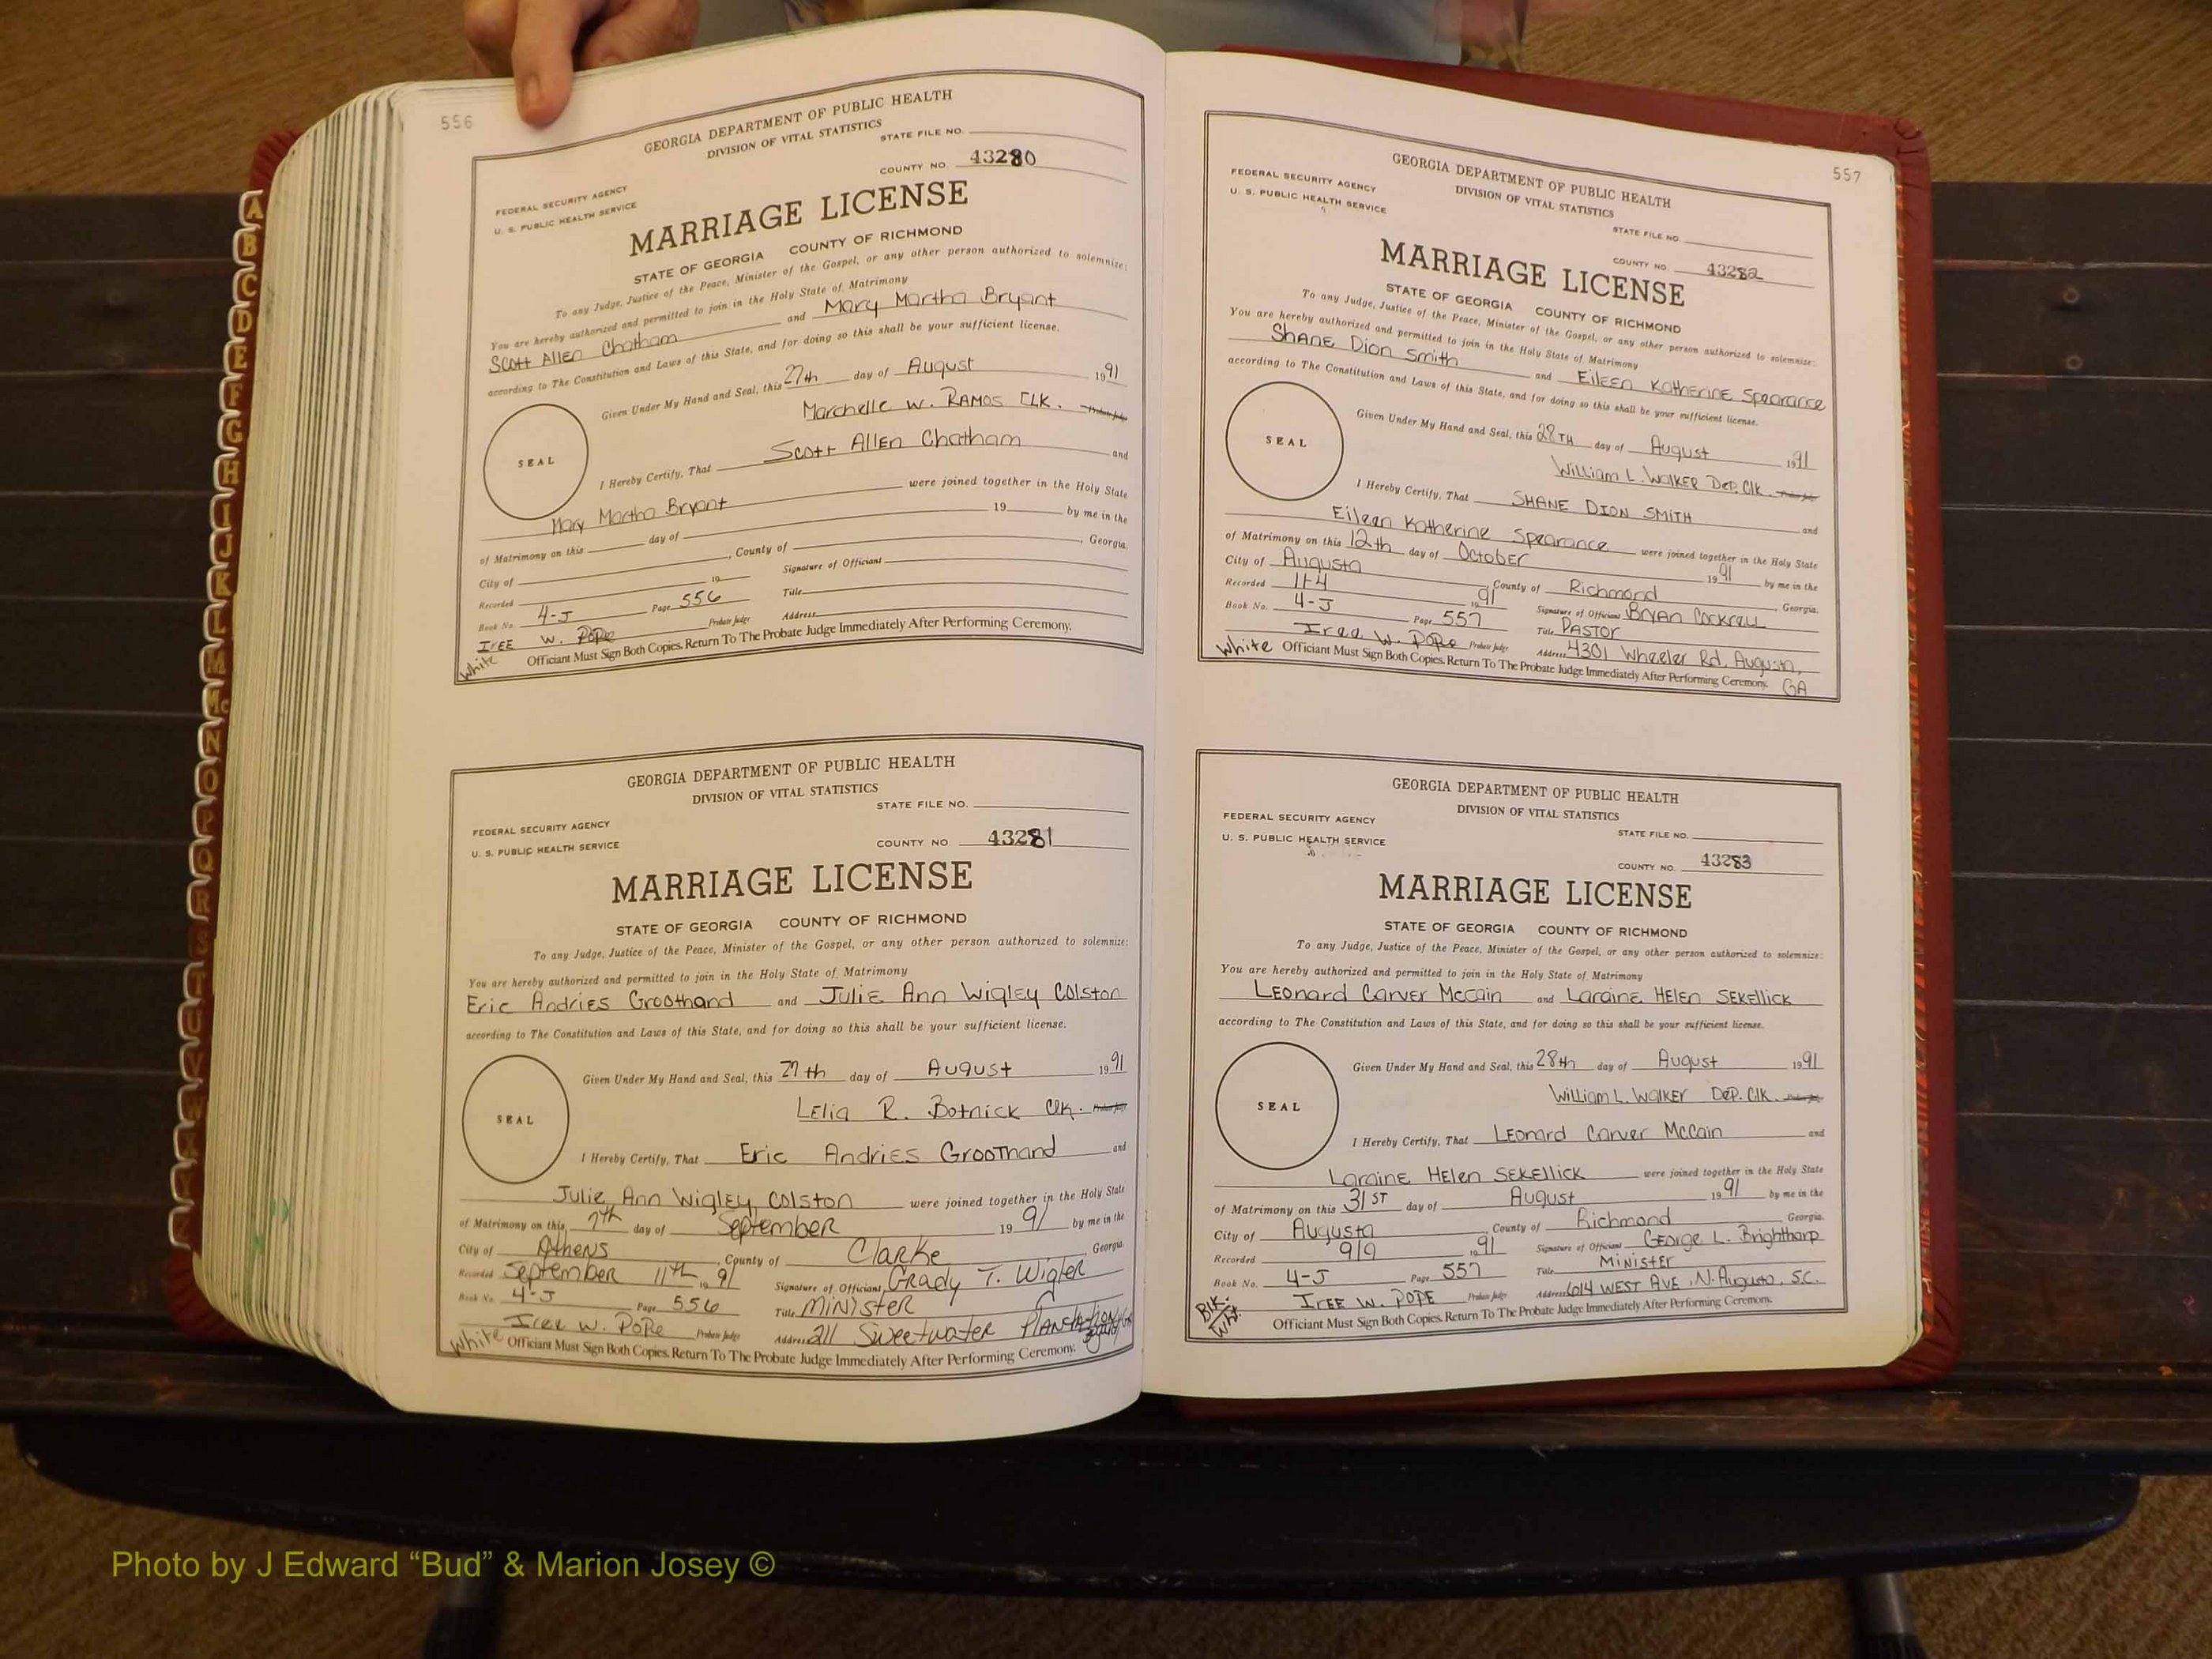 556
GEORGIA DEPARTMENT OF PUBLIC HEALTH
DIVISION OF VITAL STATISTICS
STATE FILE NO.
COUNTY NO. 43280
FEDERAL SECURITY AGENCY
U. S. PUBLIC HEALTH SERVICE
MARRIAGE LICENSE
STATE OF GEORGIA COUNTY OF RICHMOND
To any Judge, Justice of the Peace, Minister of the Gospel, or any other person authorized to solemnize:
You are hereby authorized and permitted to join in the Holy State of Matrimony
Scott Allen Chatham and Mary Martha Bryant
according to The Constitution and Laws of this State, and for doing so this shall be your sufficient license.
Given Under My Hand and Seal, this 27th day of August 1991
Marchelle W. Ramos CLK. Probate Judge
SEAL
I Hereby Certify, That Scott Allen Chatham and
Mary Martha Bryant were joined together in the Holy State
of Matrimony on this day of 19 by me in the
City of , County of , Georgia.
Recorded 19 Signature of Officiant
Book No. 4-J Page 556 Title
IREE W. POPE Probate Judge Address
White Officiant Must Sign Both Copies. Return To The Probate Judge Immediately After Performing Ceremony.
GEORGIA DEPARTMENT OF PUBLIC HEALTH
DIVISION OF VITAL STATISTICS
STATE FILE NO.
FEDERAL SECURITY AGENCY
U. S. PUBLIC HEALTH SERVICE
COUNTY NO. 43281
MARRIAGE LICENSE
STATE OF GEORGIA COUNTY OF RICHMOND
To any Judge, Justice of the Peace, Minister of the Gospel, or any other person authorized to solemnize:
You are hereby authorized and permitted to join in the Holy State of Matrimony
Eric Andries Groothand and Julie Ann Wigley Colston
according to The Constitution and Laws of this State, and for doing so this shall be your sufficient license.
Given Under My Hand and Seal, this 27th day of August 1991
Lelia R. Botnick Clk. Probate Judge
SEAL
I Hereby Certify, That Eric Andries Groothand and
Julie Ann Wigley Colston were joined together in the Holy State
of Matrimony on this 7th day of September 1991 by me in the
City of Athens, County of Clarke, Georgia.
Recorded September 11th 1991 Signature of Officiant Grady T. Wigler
Book No. 4-J Page 556 Title Minister
Iree W. Pope Probate Judge Address 211 Sweetwater Plantation
White Officiant Must Sign Both Copies. Return To The Probate Judge Immediately After Performing Ceremony.
557
GEORGIA DEPARTMENT OF PUBLIC HEALTH
DIVISION OF VITAL STATISTICS
FEDERAL SECURITY AGENCY
U. S. PUBLIC HEALTH SERVICE
STATE FILE NO.
COUNTY NO. 43282
MARRIAGE LICENSE
STATE OF GEORGIA COUNTY OF RICHMOND
To any Judge, Justice of the Peace, Minister of the Gospel, or any other person authorized to solemnize:
You are hereby authorized and permitted to join in the Holy State of Matrimony
Shane Dion Smith and Eileen Katherine Spearance
according to The Constitution and Laws of this State, and for doing so this shall be your sufficient license.
Given Under My Hand and Seal, this 28TH day of August 1991
William L. Walker Dep. Clk. Probate Judge
SEAL
I Hereby Certify, That SHANE DION SMITH and
Eileen Katherine Spearance were joined together in the Holy State
of Matrimony on this 12th day of October 1991 by me in the
City of Augusta, County of Richmond, Georgia.
Recorded 11-4 1991 Signature of Officiant Bryan Cockrell
Book No. 4-J Page 557 Title PASTOR
Iree W. Pope Probate Judge Address 4301 Wheeler Rd. Augusta, GA
White Officiant Must Sign Both Copies. Return To The Probate Judge Immediately After Performing Ceremony.
GEORGIA DEPARTMENT OF PUBLIC HEALTH
DIVISION OF VITAL STATISTICS
FEDERAL SECURITY AGENCY
U. S. PUBLIC HEALTH SERVICE
STATE FILE NO.
COUNTY NO. 43283
MARRIAGE LICENSE
STATE OF GEORGIA COUNTY OF RICHMOND
To any Judge, Justice of the Peace, Minister of the Gospel, or any other person authorized to solemnize:
You are hereby authorized and permitted to join in the Holy State of Matrimony
Leonard Carver McCain and Laraine Helen Sekellick
according to The Constitution and Laws of this State, and for doing so this shall be your sufficient license.
Given Under My Hand and Seal, this 28th day of August 1991
William L. Walker Dep. Clk. Probate Judge
SEAL
I Hereby Certify, That Leonard Carver McCain and
Laraine Helen Sekellick were joined together in the Holy State
of Matrimony on this 31ST day of August 1991 by me in the
City of Augusta, County of Richmond Georgia.
Recorded 9/9 1991 Signature of Officiant George L. Brightharp
Book No. 4-J Page 557 Title Minister
IREE W. POPE Probate Judge Address 614 WEST AVE. N. Augusta, S.C.
Blk. Wht. Officiant Must Sign Both Copies. Return To The Probate Judge Immediately After Performing Ceremony.
A
B
C
D
E
F
G
H
I
J
K
L
M
Mc
N
O
P
Q
R
S
T
U
V
W
Photo by J Edward “Bud” & Marion Josey ©